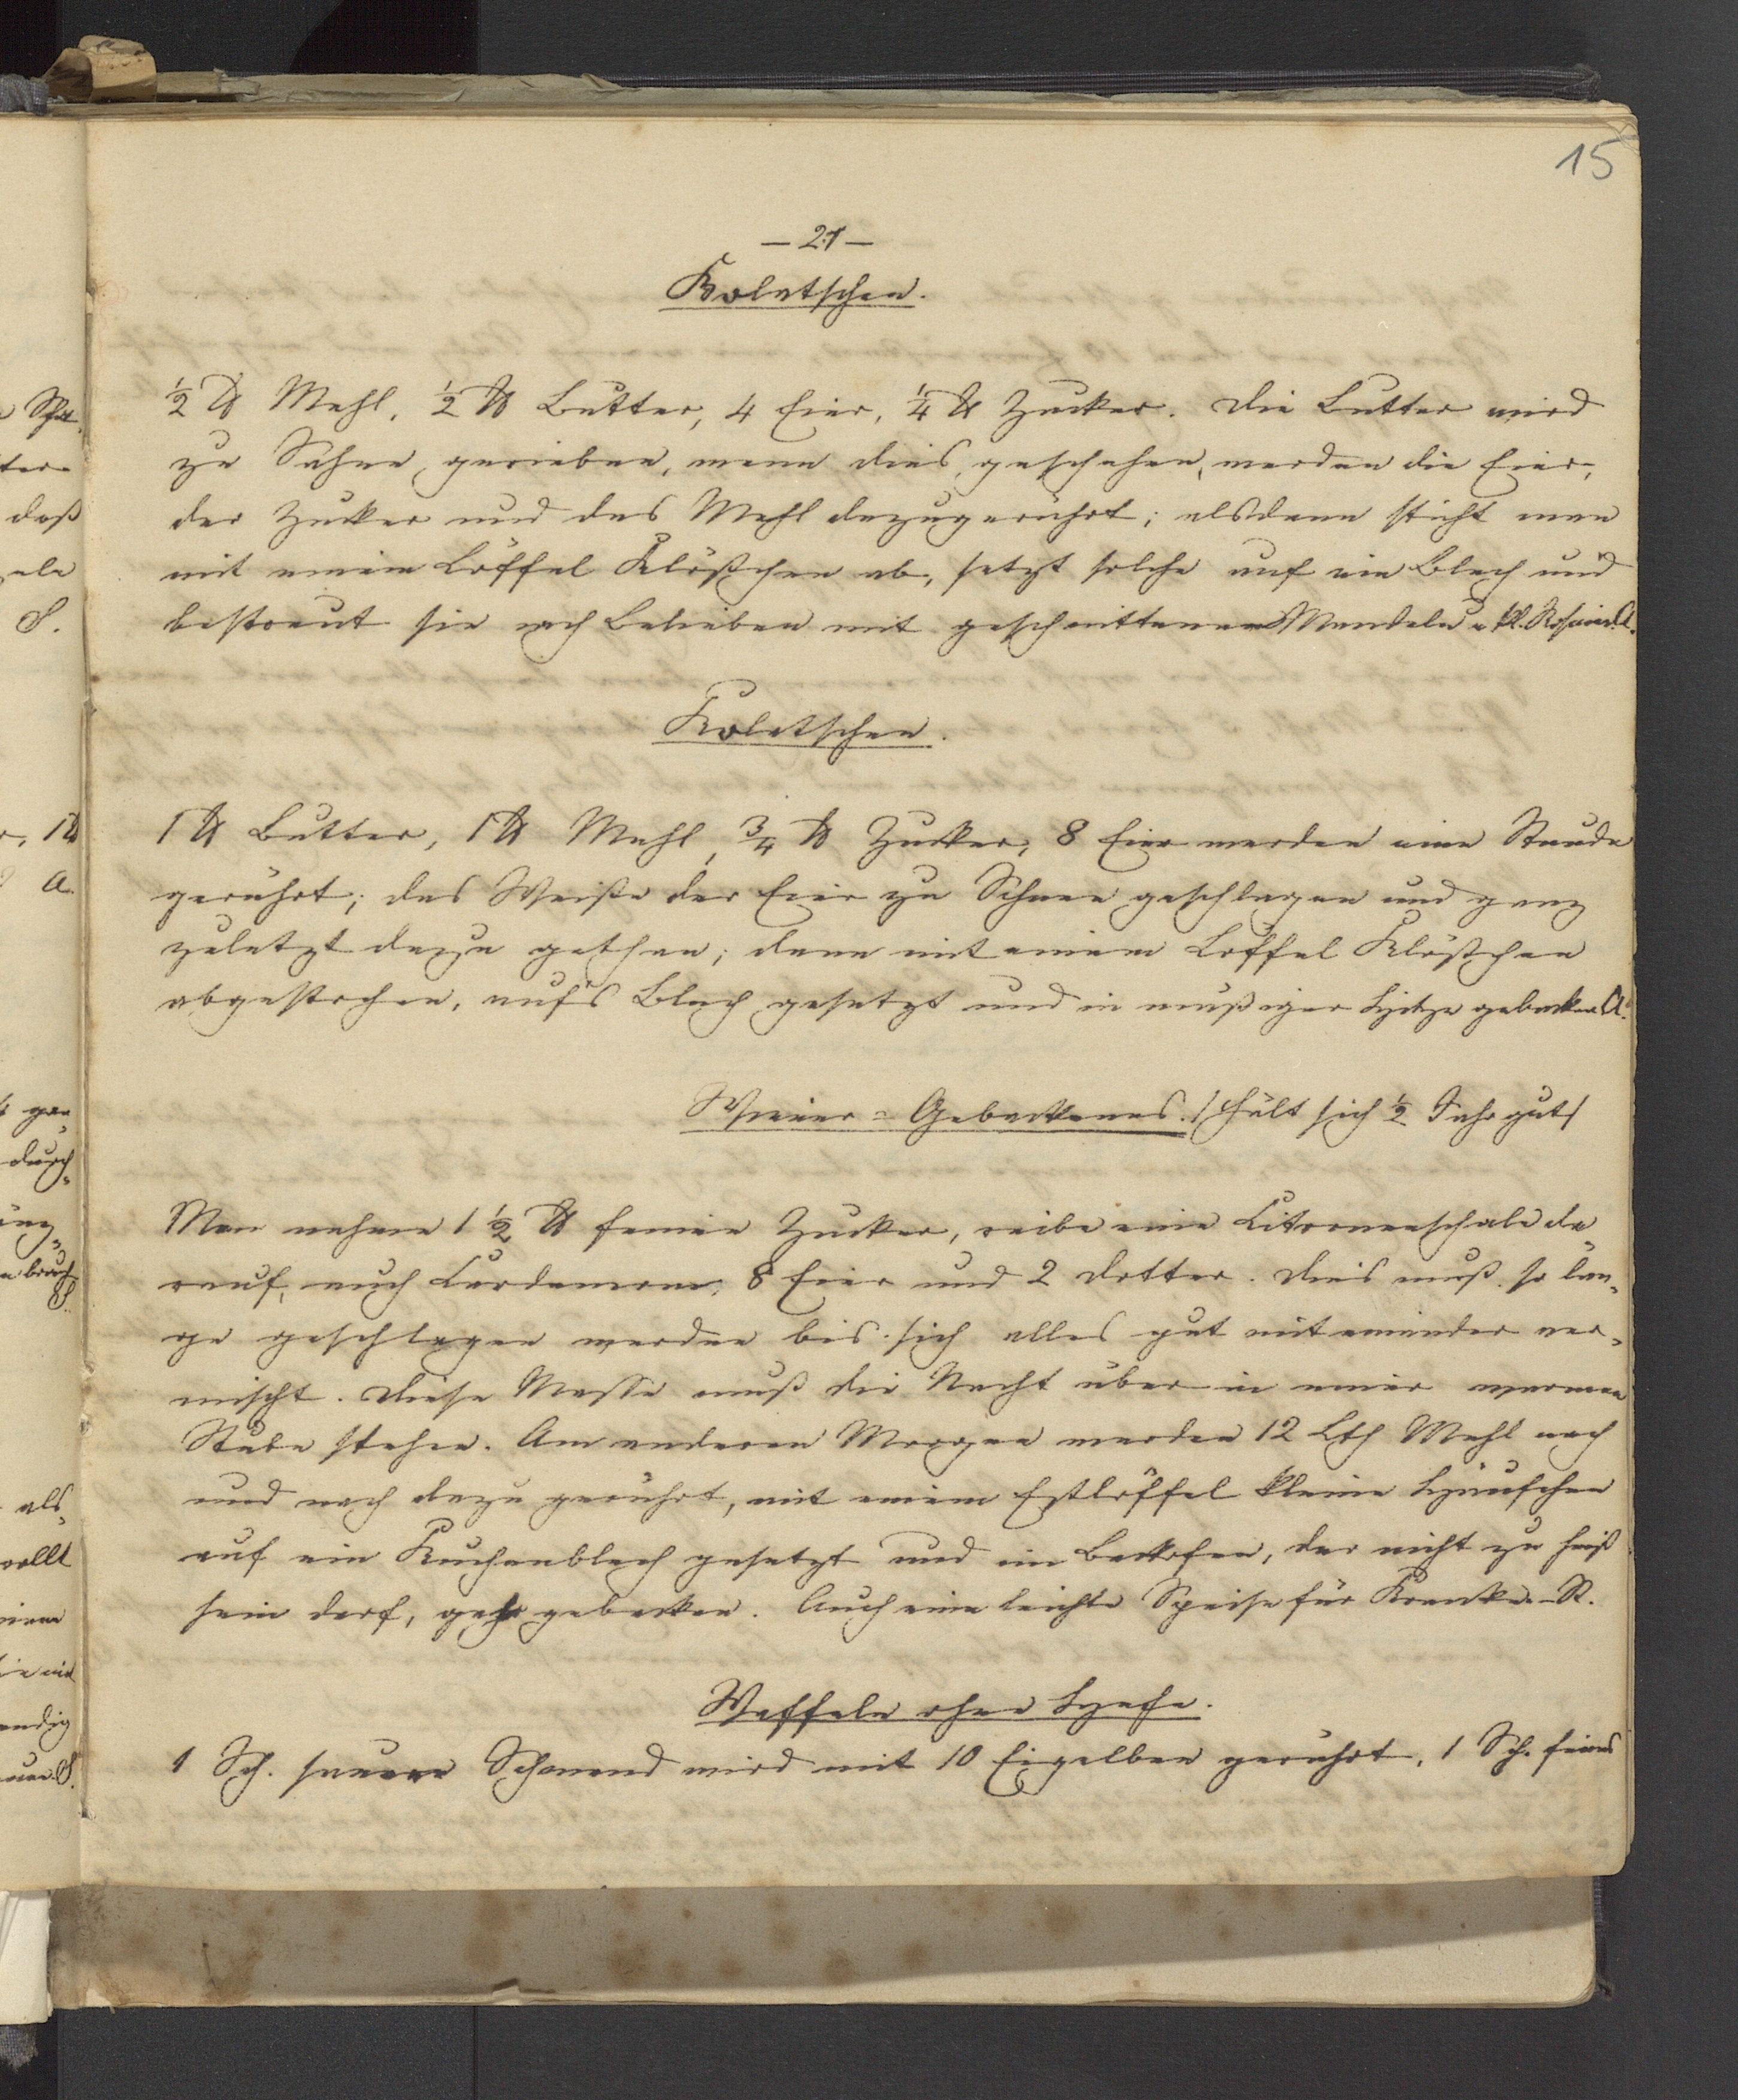 15
— 21 —
Kolatschen.
½ ℔ Mehl, ½ ℔ Butter, 4 Eier, ¼ ℔ Zucker. Die Butter wird
zu Sahne gerieben, wenn dies geschehen, werden die Eier,
der Zucker und das Mehl dazugerührt; alsdann sticht man
mit einem Löffel Klößchen ab, setzt solche auf ein Blech und
bestreut sie nach Belieben mit geschnittenen Mandeln u kl. Rosinen. A.
Kolatschen.
1 ℔ Butter, 1 ℔ Mehl, ¾ ℔ Zucker, 8 Eier werden eine Stunde
gerührt; das Weiße der Eier zu Schnee geschlagen und ganz
zuletzt dazu gethan; dann mit einem Löffel Klößchen
abgestochen, auf's Blech gesetzt und in mäßiger Hitze gebacken A.
Wiener = Gebackenes. /Hält sich ½ Jahr gut/
Man nehme 1 ½ ℔ feinen Zucker, reibe eine Citronenschale da„
rauf, auch Cardamom, 8 Eier und 2 Dotter. Dies muß so lan„
ge geschlagen werden bis sich alles gut miteinander ver„
mischt. Diese Masse muß die Nacht über in einer warmen
Stube stehen. Am anderen Morgen werden 12 Lth Mehl nach
und nach dazu gerührt, mit einem Eßlöffel kleine Häufchen
auf ein Kuchenblech gesetzt und im Backofen, der nicht zu heiß
sein darf, gahr gebacken. Auch eine leichte Speise für Kranke. St.
Waffeln ohne Hefe.
1 Sch. sauren Schmand wird mit 10 Eigelben gerührt, 1 Sch. feines